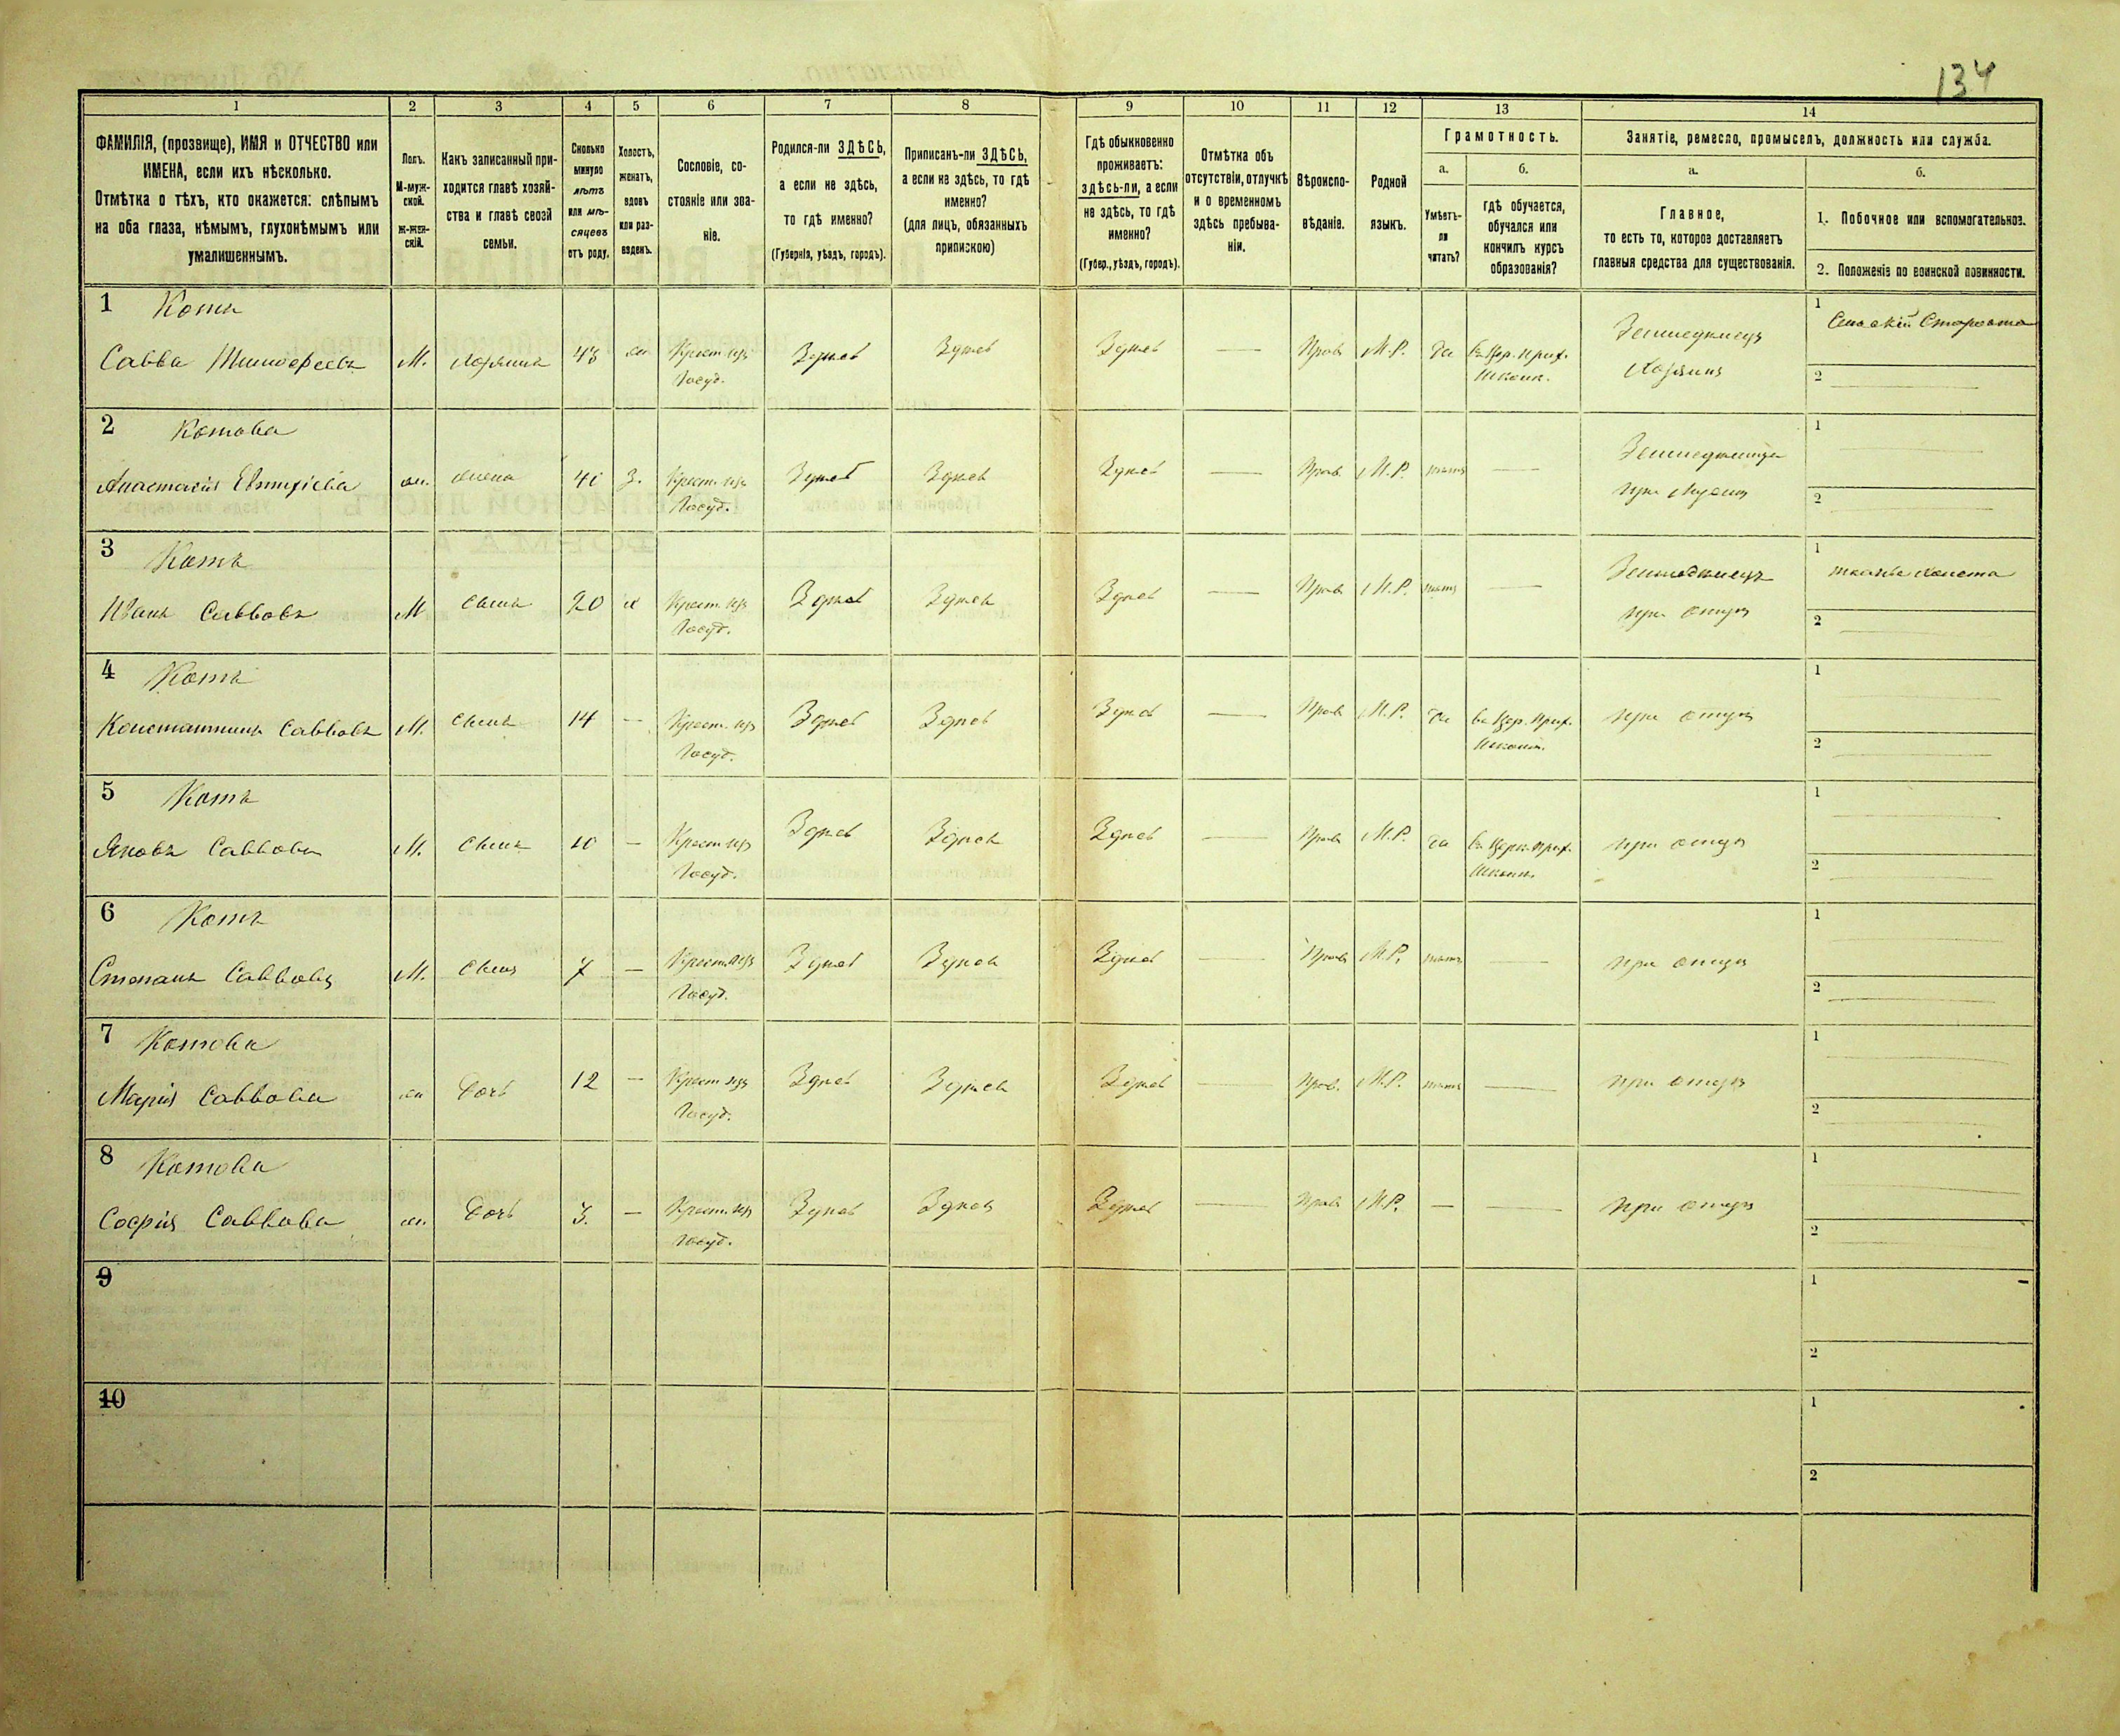 134
1 2 3 4 5 6 7 8 9 10 11 12 13 14
ФАМИЛІЯ, (прозвище), ИМЯ и ОТЧЕСТВО или
ИМЕНА, если ихъ нѣсколько.
Отмѣтка о тѣхъ, кто окажется: слѣпымъ
на оба глаза, нѣмымъ, глухонѣмымъ или
умалишеннымъ.
Полъ.
М-муж-
ской.
Ж-жен-
скій.
Какъ записанный при-
ходится главѣ хозяй-
ства и главѣ своей
семьи.
Сколько
минуло
лѣтъ
или мѣ-
сяцевъ
отъ роду.
Холостъ,
женатъ,
вдовъ
или раз-
веденъ.
Сословіе, со-
стояніе или зва-
ніе.
Родился-ли ЗДѢСЬ,
а если не здѣсь,
то гдѣ именно?
(Губернія, уѣздъ, городъ).
Приписанъ-ли ЗДѢСЬ,
а если не здѣсь, то гдѣ
именно?
(для лицъ, обязанныхъ
припискою)
Гдѣ обыкновенно
проживаетъ:
здѣсь-ли, а если
не здѣсь, то гдѣ
именно?
(Губер., уѣздъ, городъ).
Отмѣтка объ
отсутствіи, отлучкѣ
и о временномъ
здѣсь пребыва-
ніи.
Вѣроиспо-
вѣданіе.
Родной
языкъ.
Грамотность.
а.
Умѣетъ-
ли
читать?
б.
гдѣ обучается,
обучался или
кончилъ курсъ
образованія?
Занятіе, ремесло, промыселъ, должность или служба.
а.
Главное,
то есть то, которое доставляетъ
главныя средства для существованія.
б.
1. Побочное или вспомогательное.
2. Положеніе по воинской повинности.
1 Котъ
Савва Тимофеевъ М. хозяинъ 43 ж Крест. изъ Здѣсь Здѣсь Здѣсь — Прав М.Р. да въ Цер. прих.
Госуд. школѣ.
Земледѣлецъ
Хозяинъ
1 Сельскій Староста
2
2 Котова
Анастасія Евтихіева ж. жена 40 З. Крест. изъ Здѣсь Здѣсь Здѣсь — Прав. М.Р. нѣтъ —
Госуд.
Земледѣлица
при мужѣ
1
2
3 Котъ
Иванъ Саввовъ М сынъ 20 х Крест. изъ Здѣсь Здѣсь Здѣсь — Прав М.Р. нѣтъ —
Госуд.
Земледѣлецъ
при отцѣ
1 тканье холста
2
4 Котъ
Константинъ Саввовъ М. сынъ 14 — Крест. изъ Здѣсь Здѣсь Здѣсь — Прав М.Р. да въ Цер. прих. при отцѣ
Госуд. школѣ.
1
2
5 Котъ
Яковъ Саввовъ М. сынъ 10 — Крест. изъ Здѣсь Здѣсь Здѣсь — Прав М.Р. да въ Церк. прих. при отцѣ
Госуд. школѣ
1
2
6 Котъ
Степанъ Саввовъ М. сынъ 7 — Крест. изъ Здѣсь Здѣсь Здѣсь — Прав М.Р. нѣтъ — при отцѣ
Госуд.
1
2
7 Котова
Марія Саввова ж дочь 12 — Крест. изъ Здѣсь Здѣсь Здѣсь — Прав. М.Р. нѣтъ — при отцѣ
Госуд.
1
2
8 Котова
Софія Саввова ж. дочь 3. — Крест. изъ Здѣсь Здѣсь Здѣсь — Прав М.Р. — — при отцѣ
Госуд.
1
2
9
1
2
10
1
2